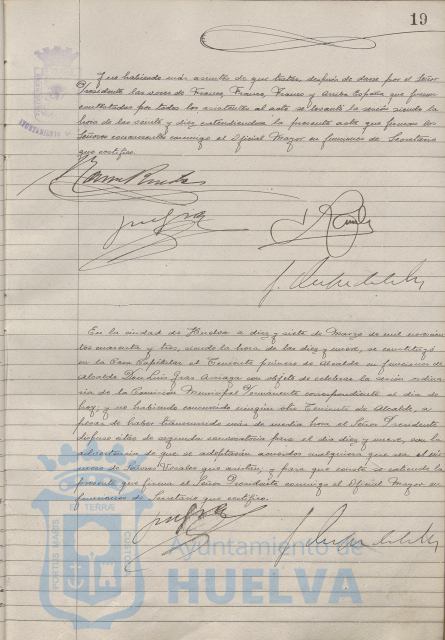 19
Y no habiendo más asuntos de que tratar, después de darse por el Señor
Presidente las voces de Franco, Franco, Franco y Arriba España que fueron
contestadas por todos los asistentes al acto se levantó la sesión siendo la
hora de las veinte y diez extendiéndose la presente acta que firman los
Señores concurrentes conmigo el Oficial Mayor en funciones de Secretario
que certifico.
En la ciudad de Huelva a diez y siete de Marzo de mil novecien
tos cuarenta y tres, siendo la hora de las diez y nueve, se constituyó
en la Casa Capitular el Teniente primero de Alcalde en funciones de
Alcalde Don Luis Gras Arriaga con objeto de celebrar la sesión ordina
ria de la Comisión Municipal Permanente correspondiente al día de
hoy, y no habiendo concurrido ningún otro Teniente de Alcalde, a
pesar de haber transcurrido más de media hora el Señor Presidente
dispuso citar de segunda convocatoria para el día diez y nueve, con la
advertencia de que se adoptarán acuerdos cualquiera que sea el nú
mero de Señores Vocales que asistan, y para que conste se extiende la
presente que firma el Señor Presidente conmigo el Oficial Mayor en
funciones de Secretario que certifico.
Ayuntamiento de
HUELVA